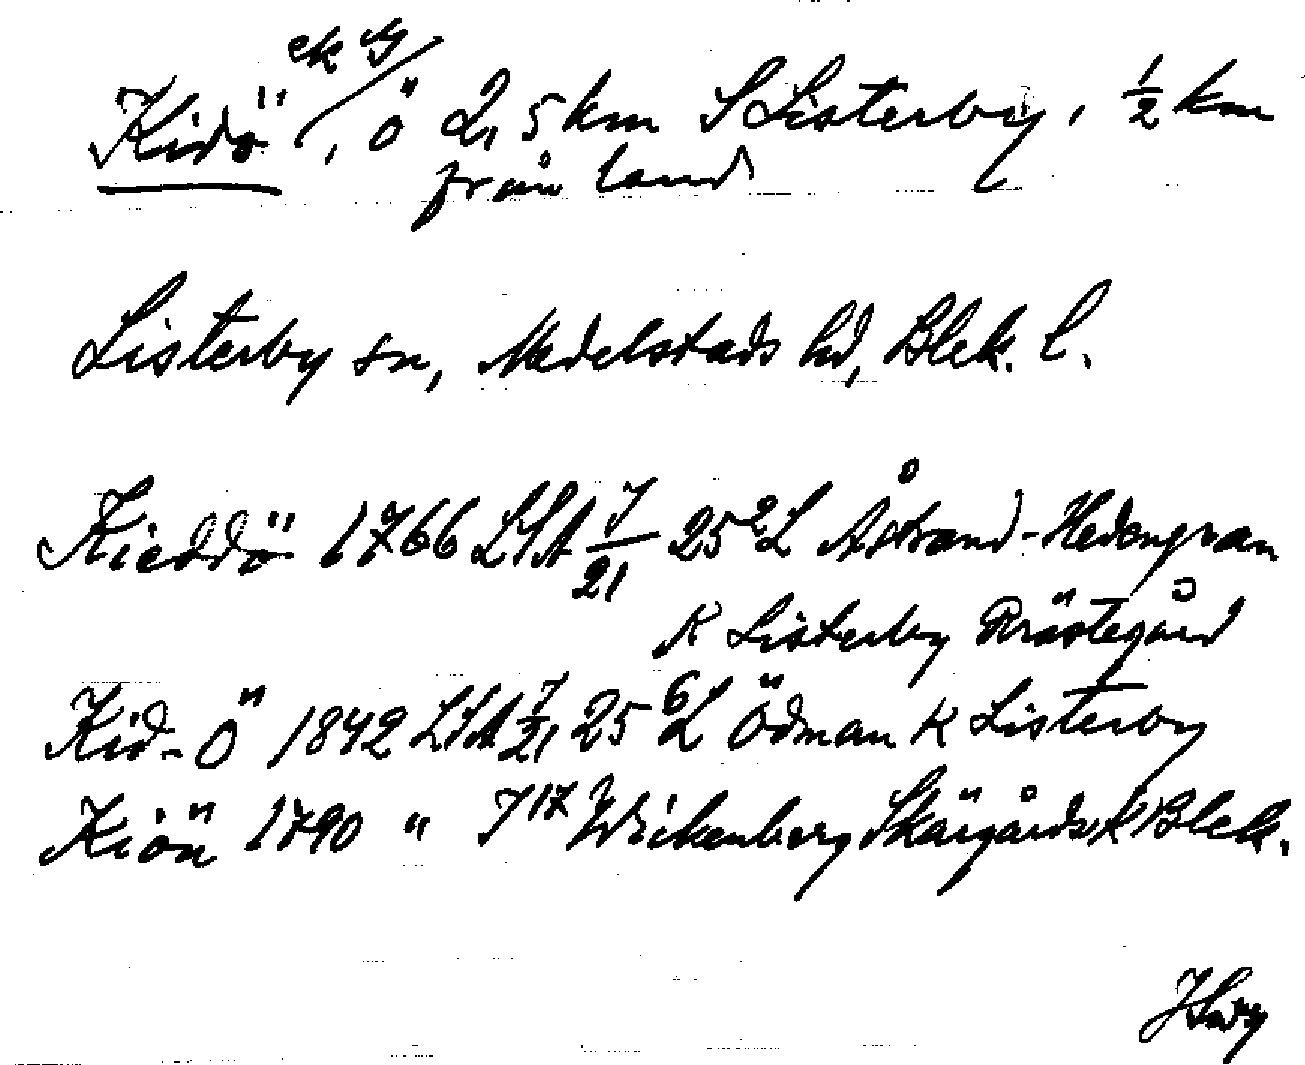 ek
Kidö, ö 2,5 km S Listerby, 1/2 km
från land
Listerby sn, Medelstads hd, Blek. l.
Kieddö 1766 LSA 7/21 25²L Åstrand-Hedengran
K Listerby Prästegård
Kid-Ö 1842 LSA 7/21 25⁶L Ödman K Listerby
Kiön 1790 " J17 Wikenberg Skärgårds K Blek.